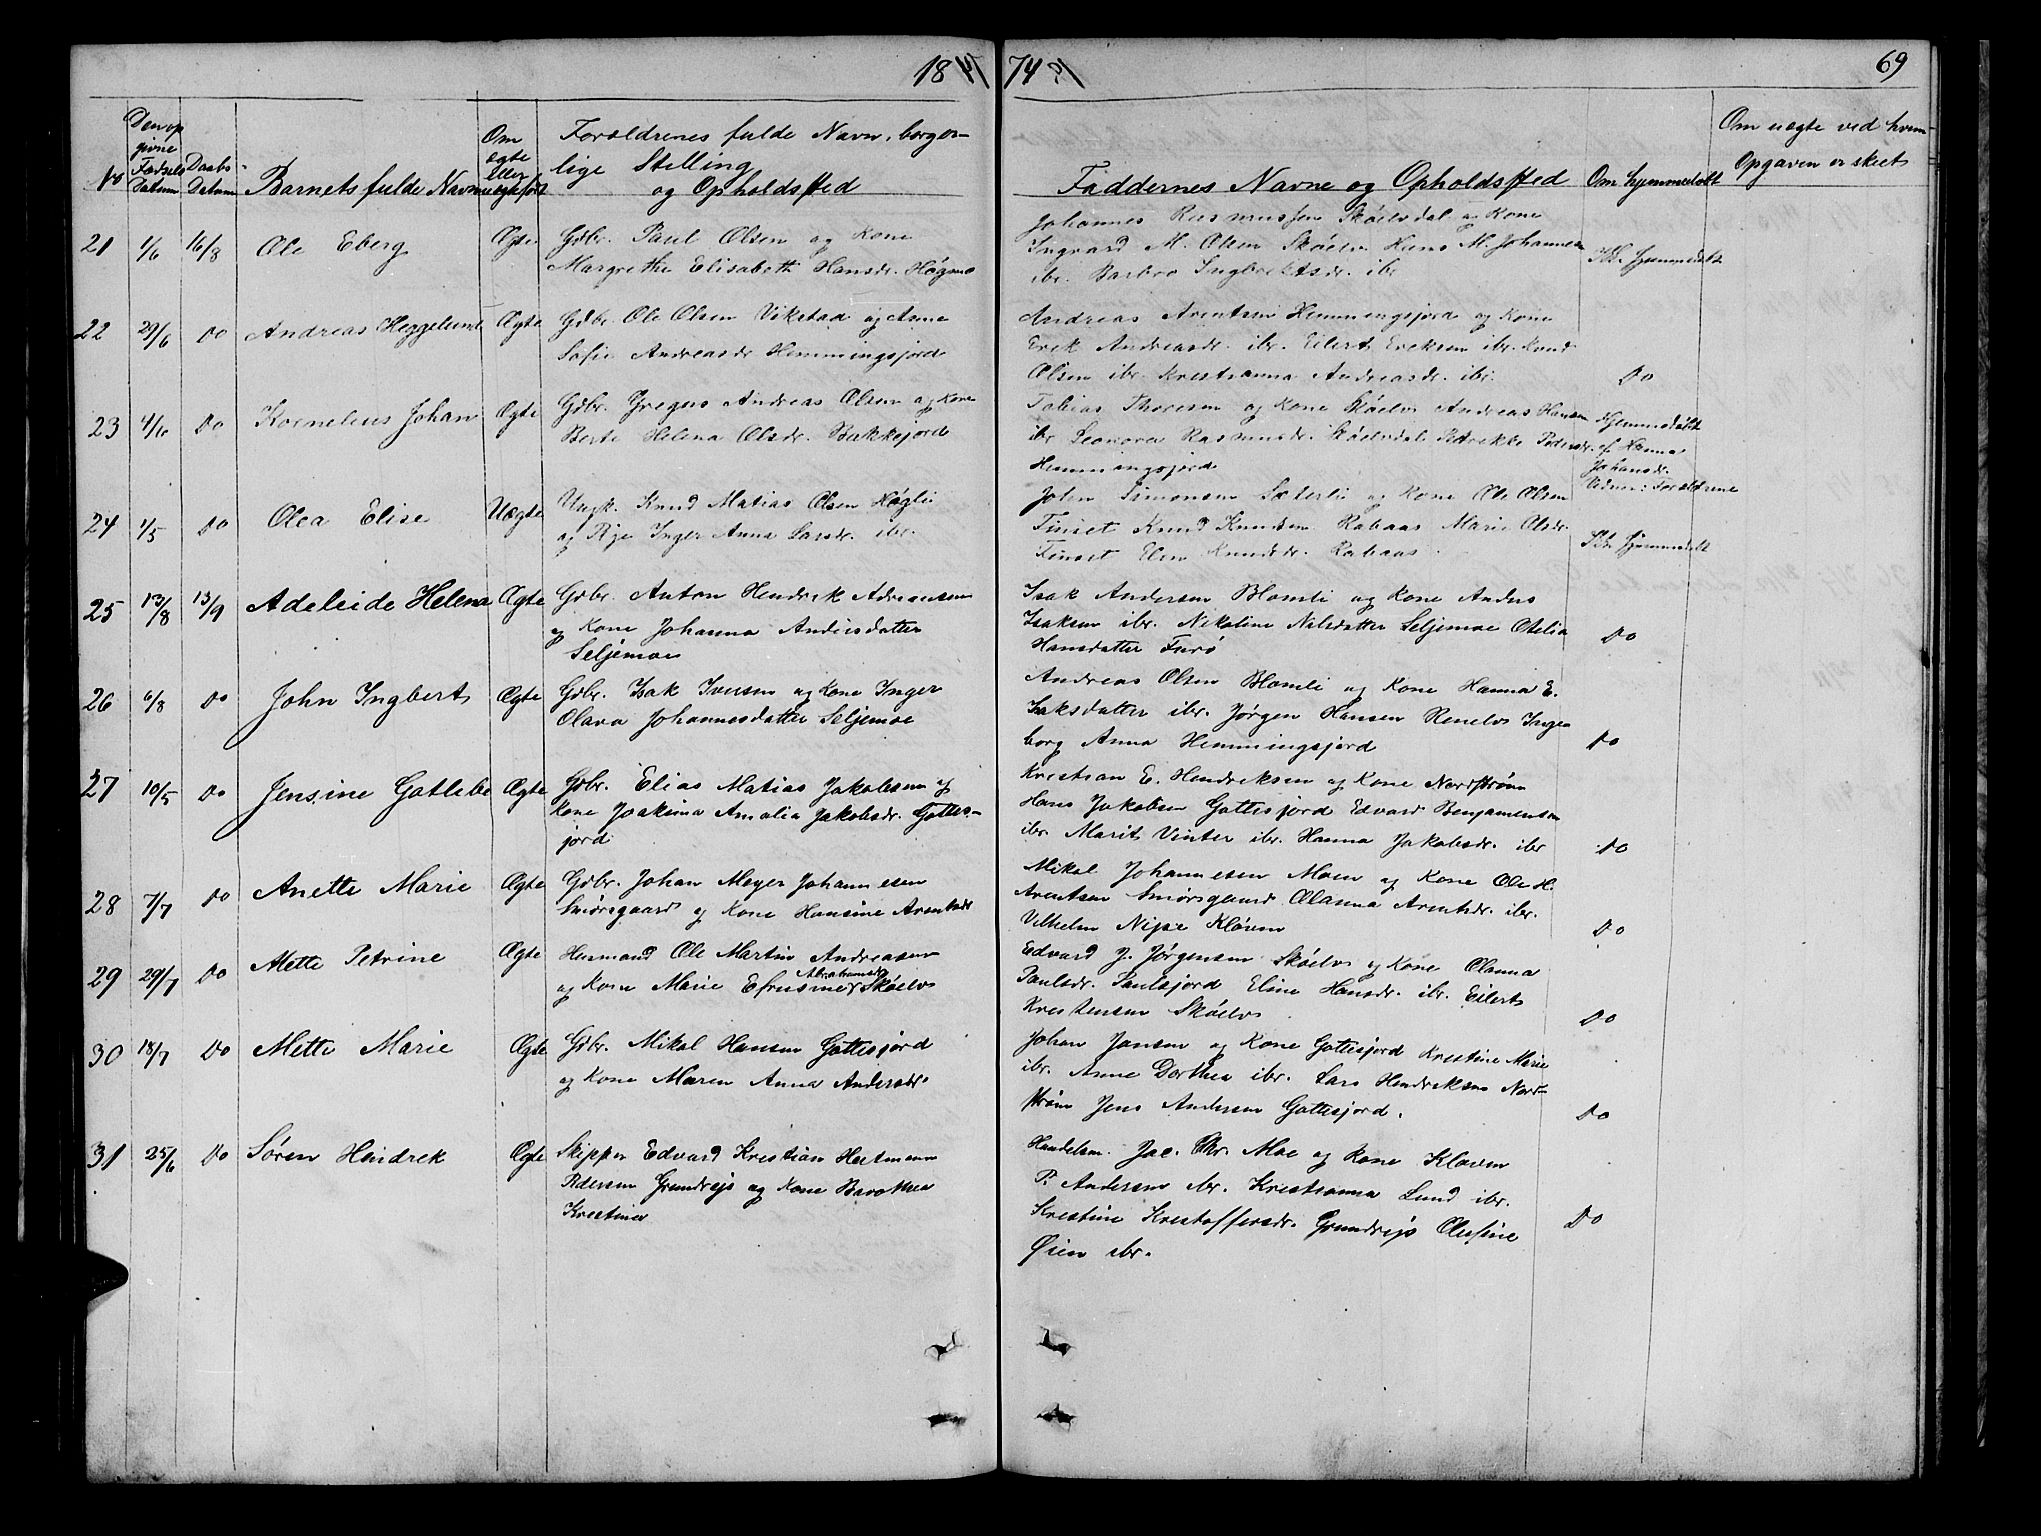 18 74
69
No
Den opgivne Fødsels Datum
Daabs Datum
Barnets fulde Navn
Om ægte eller uægte født
Forældrenes fulde Navn, borgerlige Stilling og Opholdssted
Faddernes Navne og Opholdssted
Om hjemmedøbt
Om uægte ved hvem Opgaven er skeet
21 1/6 16/8 Ole Eberg Ægte Gdbr. Paul Olsen og Kone
Margrethe Elisabeth Hansdr. Høgmo
Johannes Rasmussen Skøelvdal og Kone
Ingvard M. Olsen Skøelv Hans M. Johannesen
ibr. Barbro Ingbrektsdr. ibr
Ik. hjemmedøbt
22 29/6 Do Andreas Heggelund Ægte Gdbr. Ole Olsen Vikstad og Anne
Sofie Andreasdr Hemmingsjord
Andreas Arentsen Hemmingsjord og Kone
Erik Andreasdr. ibr. Eilert Eriksen ibr. Knud
Olsen ibr. Kristianna Andreasdr. ibr.
Do
23 4/6 Do Kornelius Johan Ægte Gdbr. Gregers Andreas Olsen og Kone
Berte Helena Olsdr. Bakkejord
Tobias Thoresen og Kone Skøelv Andreas Hansen
ibr Leonora Rasmusdr. Skøelvdal Petrikke Pedersdr.
Hemmingsjord
Hjemmedøbt
af Hanna
Johansdr.
Vidner: Forældrene
24 1/5 Do Olea Elise Uægte Ungk. Knud Matias Olsen Høgli
og Pige Inger Anna Larsdr. ibr.
John Simonsen Sæterli og Kone Ole Olsen
Finset Knud Knudsen Rabaas Marie Olsdr.
Finset Elen Knudsdr. Rabaas.
Ik. hjemmedøbt
25 13/8 13/9 Adeleide Helena Ægte Gdbr. Anton Hendrik Adriansen
og Kone Johanna Andersdatter
Seljemoe
Isak Andersen Blomli og Kone Anders
Isaksen ibr. Nikoline Nilsdatter Seljemoe Otelia
Hansdatter Furø
Do
26 6/8 Do John Ingbert Ægte Gdbr. Isak Iversen og Kone Inger
Olava Johannesdatter Seljemoe
Andreas Olsen Blomli og Kone Hanna E.
Isaksdatter ibr. Jørgen Hansen Renelv Inge
borg Anna Hemmingsjord
Do
27 10/5 Do Jensine Gotlibe Ægte Gdbr. Elias Matias Jakobsen og
Kone Joakima Amalia Jakobsdr. Gottes-
jord
Kristian E. Hendriksen og Kone Nordstrøm
Hans Jakobsen Gottesjord Edvard Benjamensen
ibr. Marit Vinter ibr. Hanna Jakobsdr. ibr
Do
28 7/7 Do Anette Marie Ægte Gdbr. Johan Meyer Johannesen
Smørsgaard og Kone Hansine Arentsdr
Mikal Johannesen Moen og Kone Ole H.
Arentsen Smørsgaard Olanna Arentsdr. ibr.
Vilhelm Nipe Kløven
Do
29 29/7 Do Mette Petrine Ægte Husmand Ole Martin Andreasen
og Kone Marie Efrusine Abrahamsdr Skøelv
Edvard J. Jørgensen Skøelv og Kone Olanna
Paulsdr. Paulsjord Eline Hansdr. ibr. Eilert
Kristensen Skøelv
Do
30 18/7 Do Mette Marie Ægte Gdbr. Mikal Hansen Gottesjord
og Kone Maren Anna Andersdr.
Johan Jansen og Kone Gottesjord Kristine Marie
ibr. Anne Dorthea ibr. Lars Hendriksen Nord-
strøm Jens Andersen Gottesjord.
Do
31 25/6 Do Søren Hendrik Ægte Skipper Edvard Kristian Hartmann
Pedersen Grundrejs og Kone Barothea
Kristina
Handelsm. Jac. Chr. Moe og Kone Kløven
P. Andersen ibr. Kristianna Lund ibr.
Kristine Kristoffersdr. Grundrejs Olufine
Øien ibr.
Do